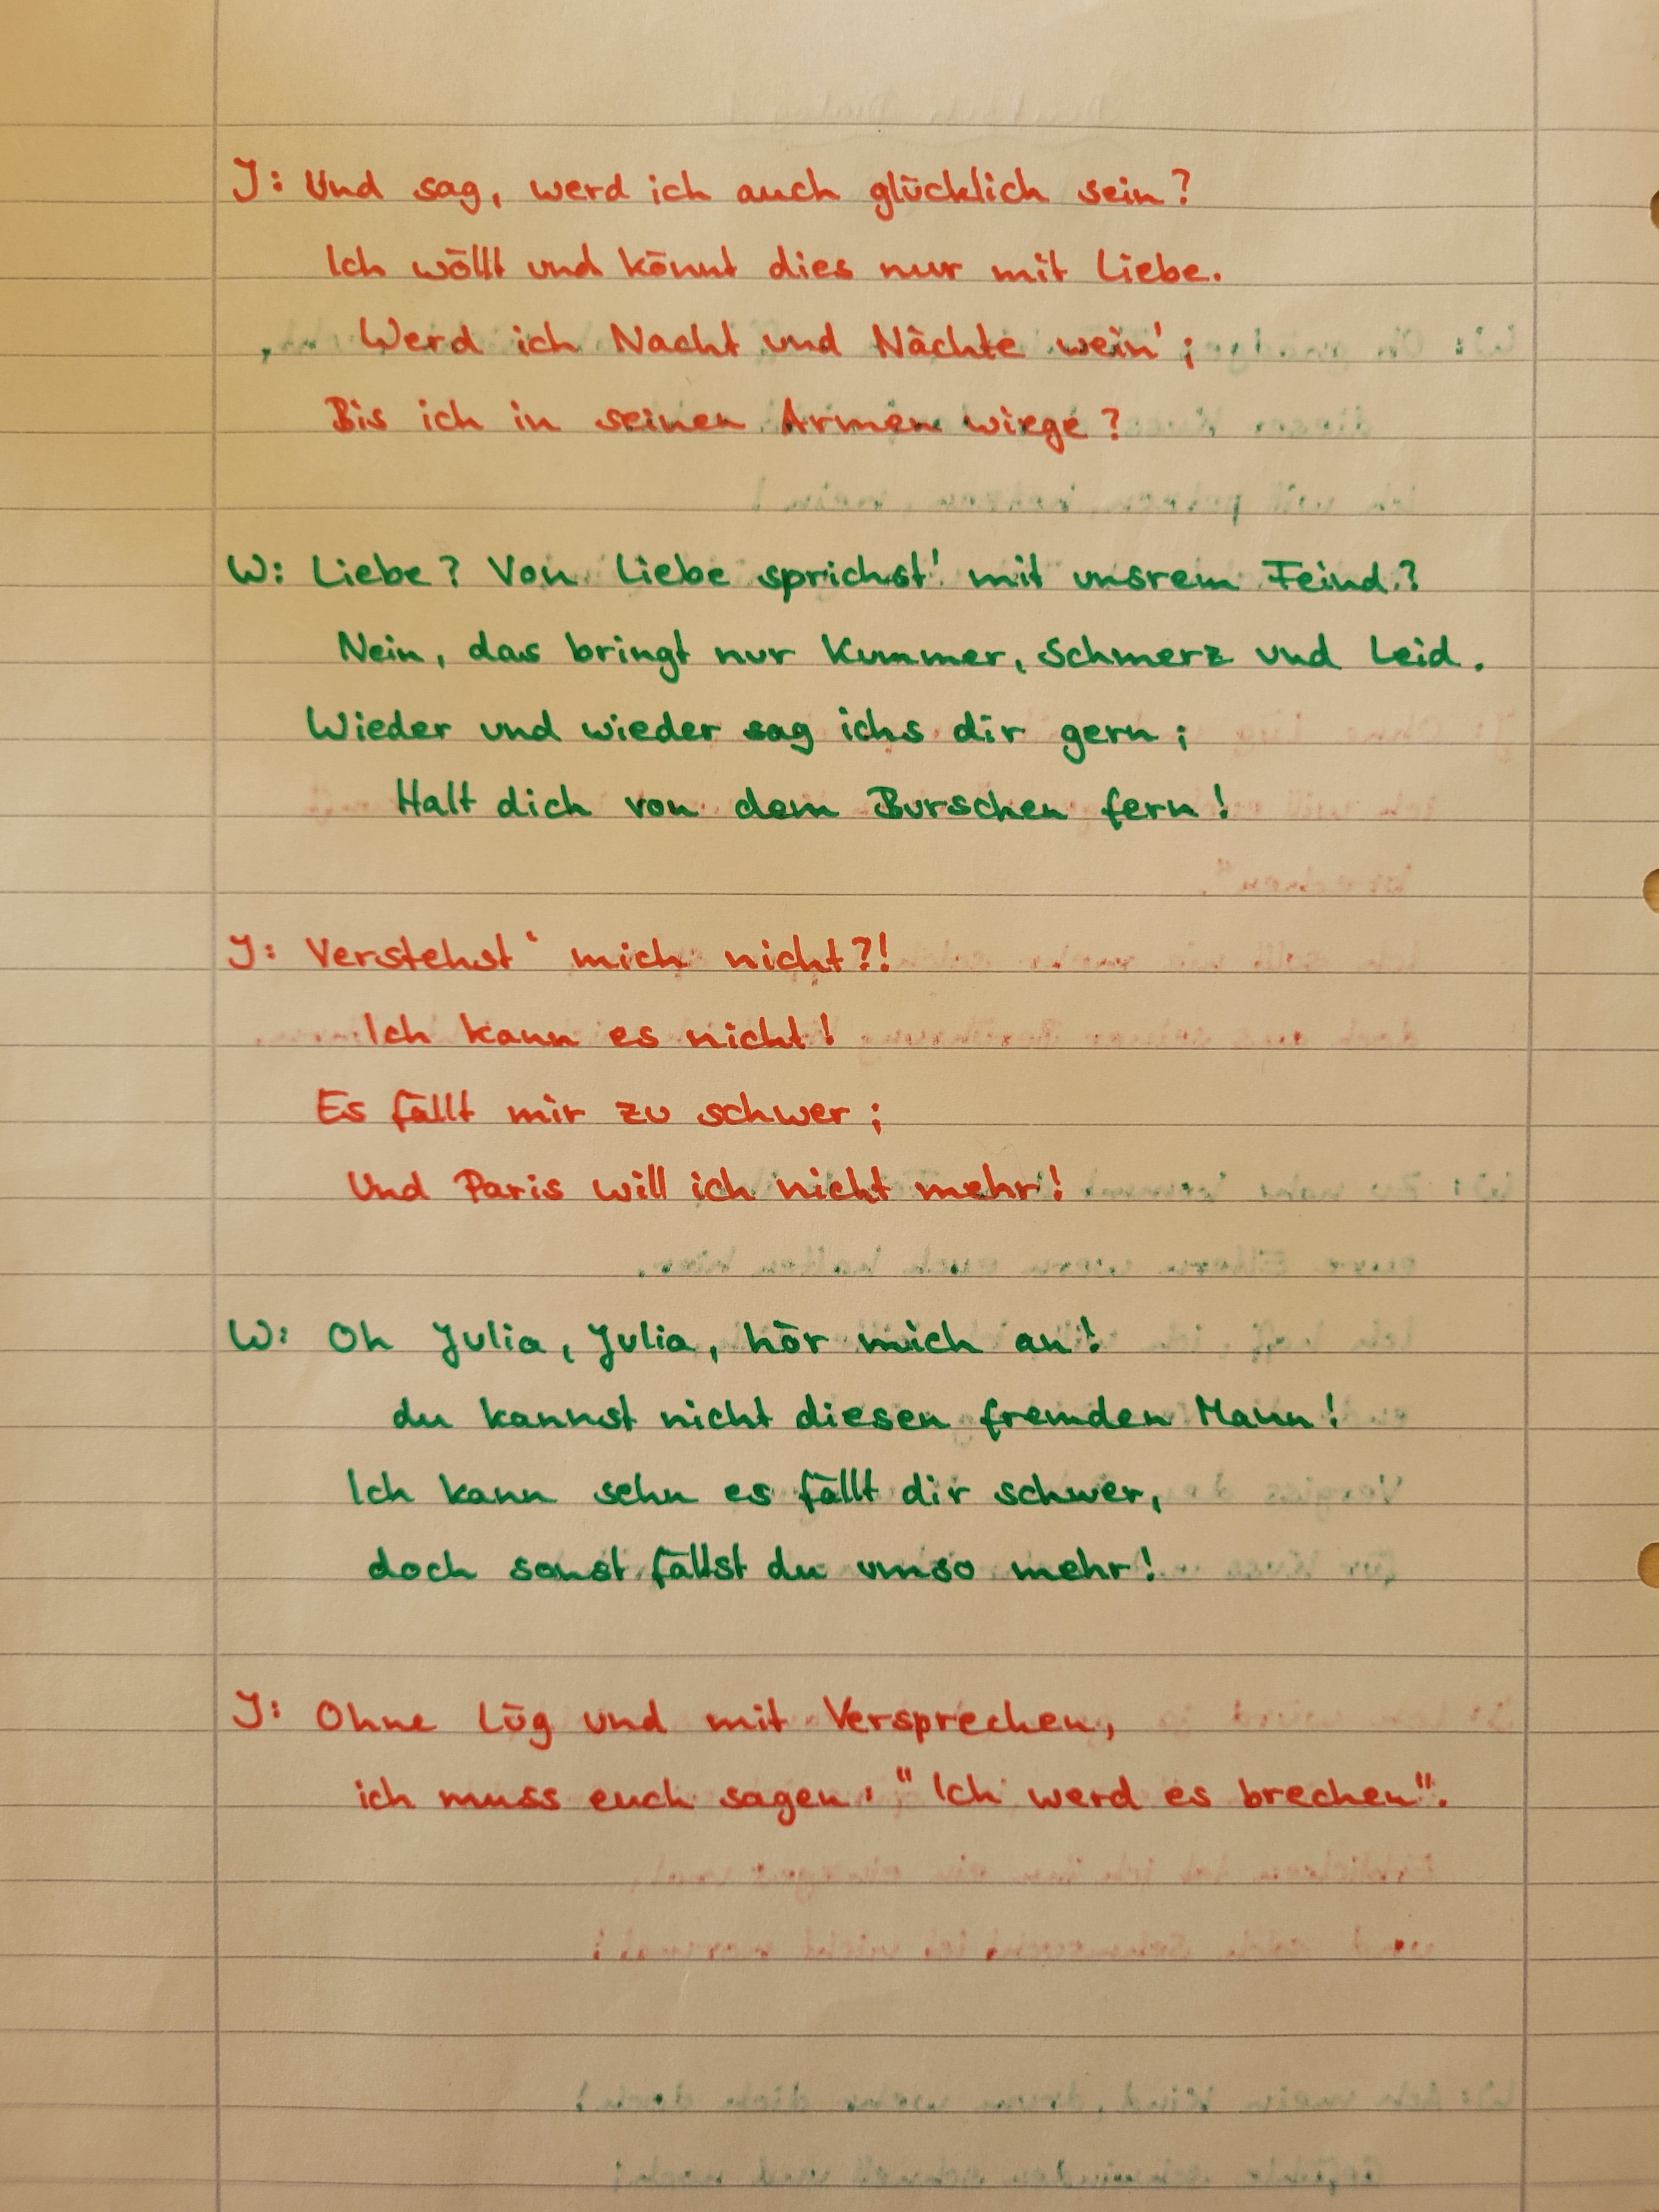 J: Und sag, werd ich auch glücklich sein?
Ich wöllt und könnt dies nur mit Liebe.
Werd ich Nacht und Nächte wein';
Bis ich in seinen Armen wiege?
W: Liebe? Von Liebe sprichst' mit unsrem Feind?
Nein, das bringt nur Kummer, Schmerz und Leid.
Wieder und wieder sag ichs dir gern;
Halt dich von dem Burschen fern!
J: Verstehst' mich nicht?!
Ich kann es nicht!
Es fällt mir zu schwer;
Und Paris will ich nicht mehr!
W: Oh Julia, Julia, hör mich an!
du kannst nicht diesen fremden Mann!
Ich kann sehn es fällt dir schwer,
doch sonst fällst du umso mehr!
J: Ohne Lüg und mit Versprechen,
ich muss euch sagen: "Ich werd es brechen".